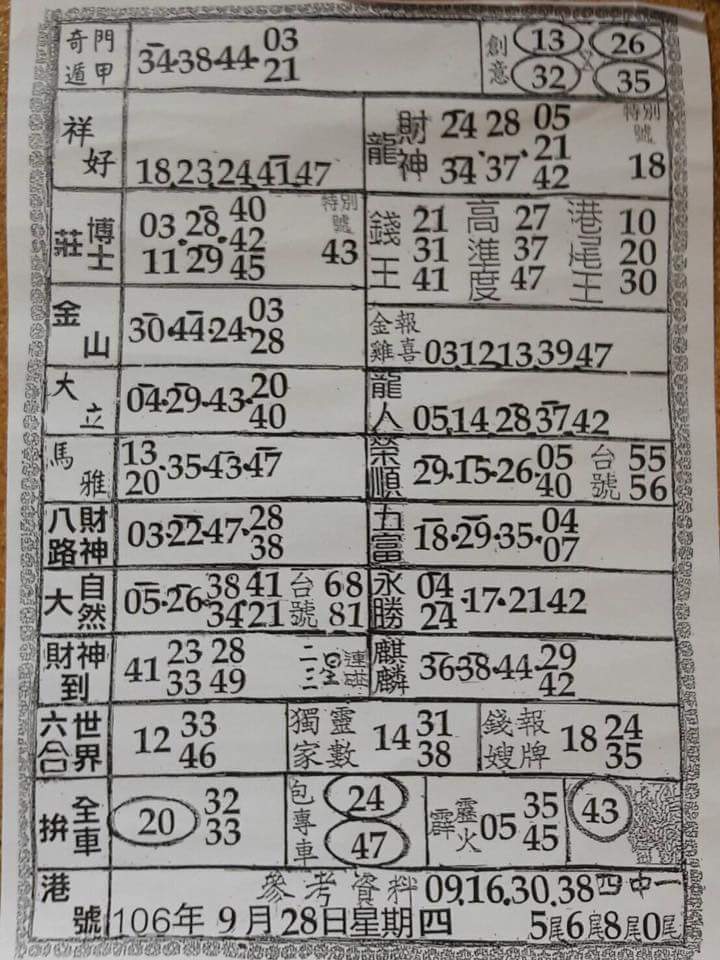 奇門遁甲 34.38.44.03 21 創意 13 26 32 35
祥好 18.23.24.41.47 龍財神 24 28 05 34 37 21 42 特別號 18
莊博士 03.28.40 11.29 42 45 特別號 43 錢王 21 31 41 高準度 27 37 47 港尾王 10 20 30
金山 30.44.24.03 28 金雞報喜 03.12.13.39.47
大立 04.29.43.20 40 龍人 05.14.28.37.42
馬雅 13 20.35.43.47 榮順 29.15.26.05 40 台號 55 56
八路財神 03.22.47.28 38 五富 18.29.35.04 07
大自然 05.26.38 41 34 21 台號 68 81 永勝 04 24.17.21 42
財神到 41 23 28 33 49 二三星連碰 麒麟 36.38.44.29 42
六合世界 12 33 46 獨家靈數 14 31 38 錢嫂報牌 18 24 35
拚全車 20 32 33 包專車 24 47 霹靈火 05 35 45 43
港號 參考資料 09.16.30.38 四中一
106年 9月28日星期四 5尾6尾8尾0尾